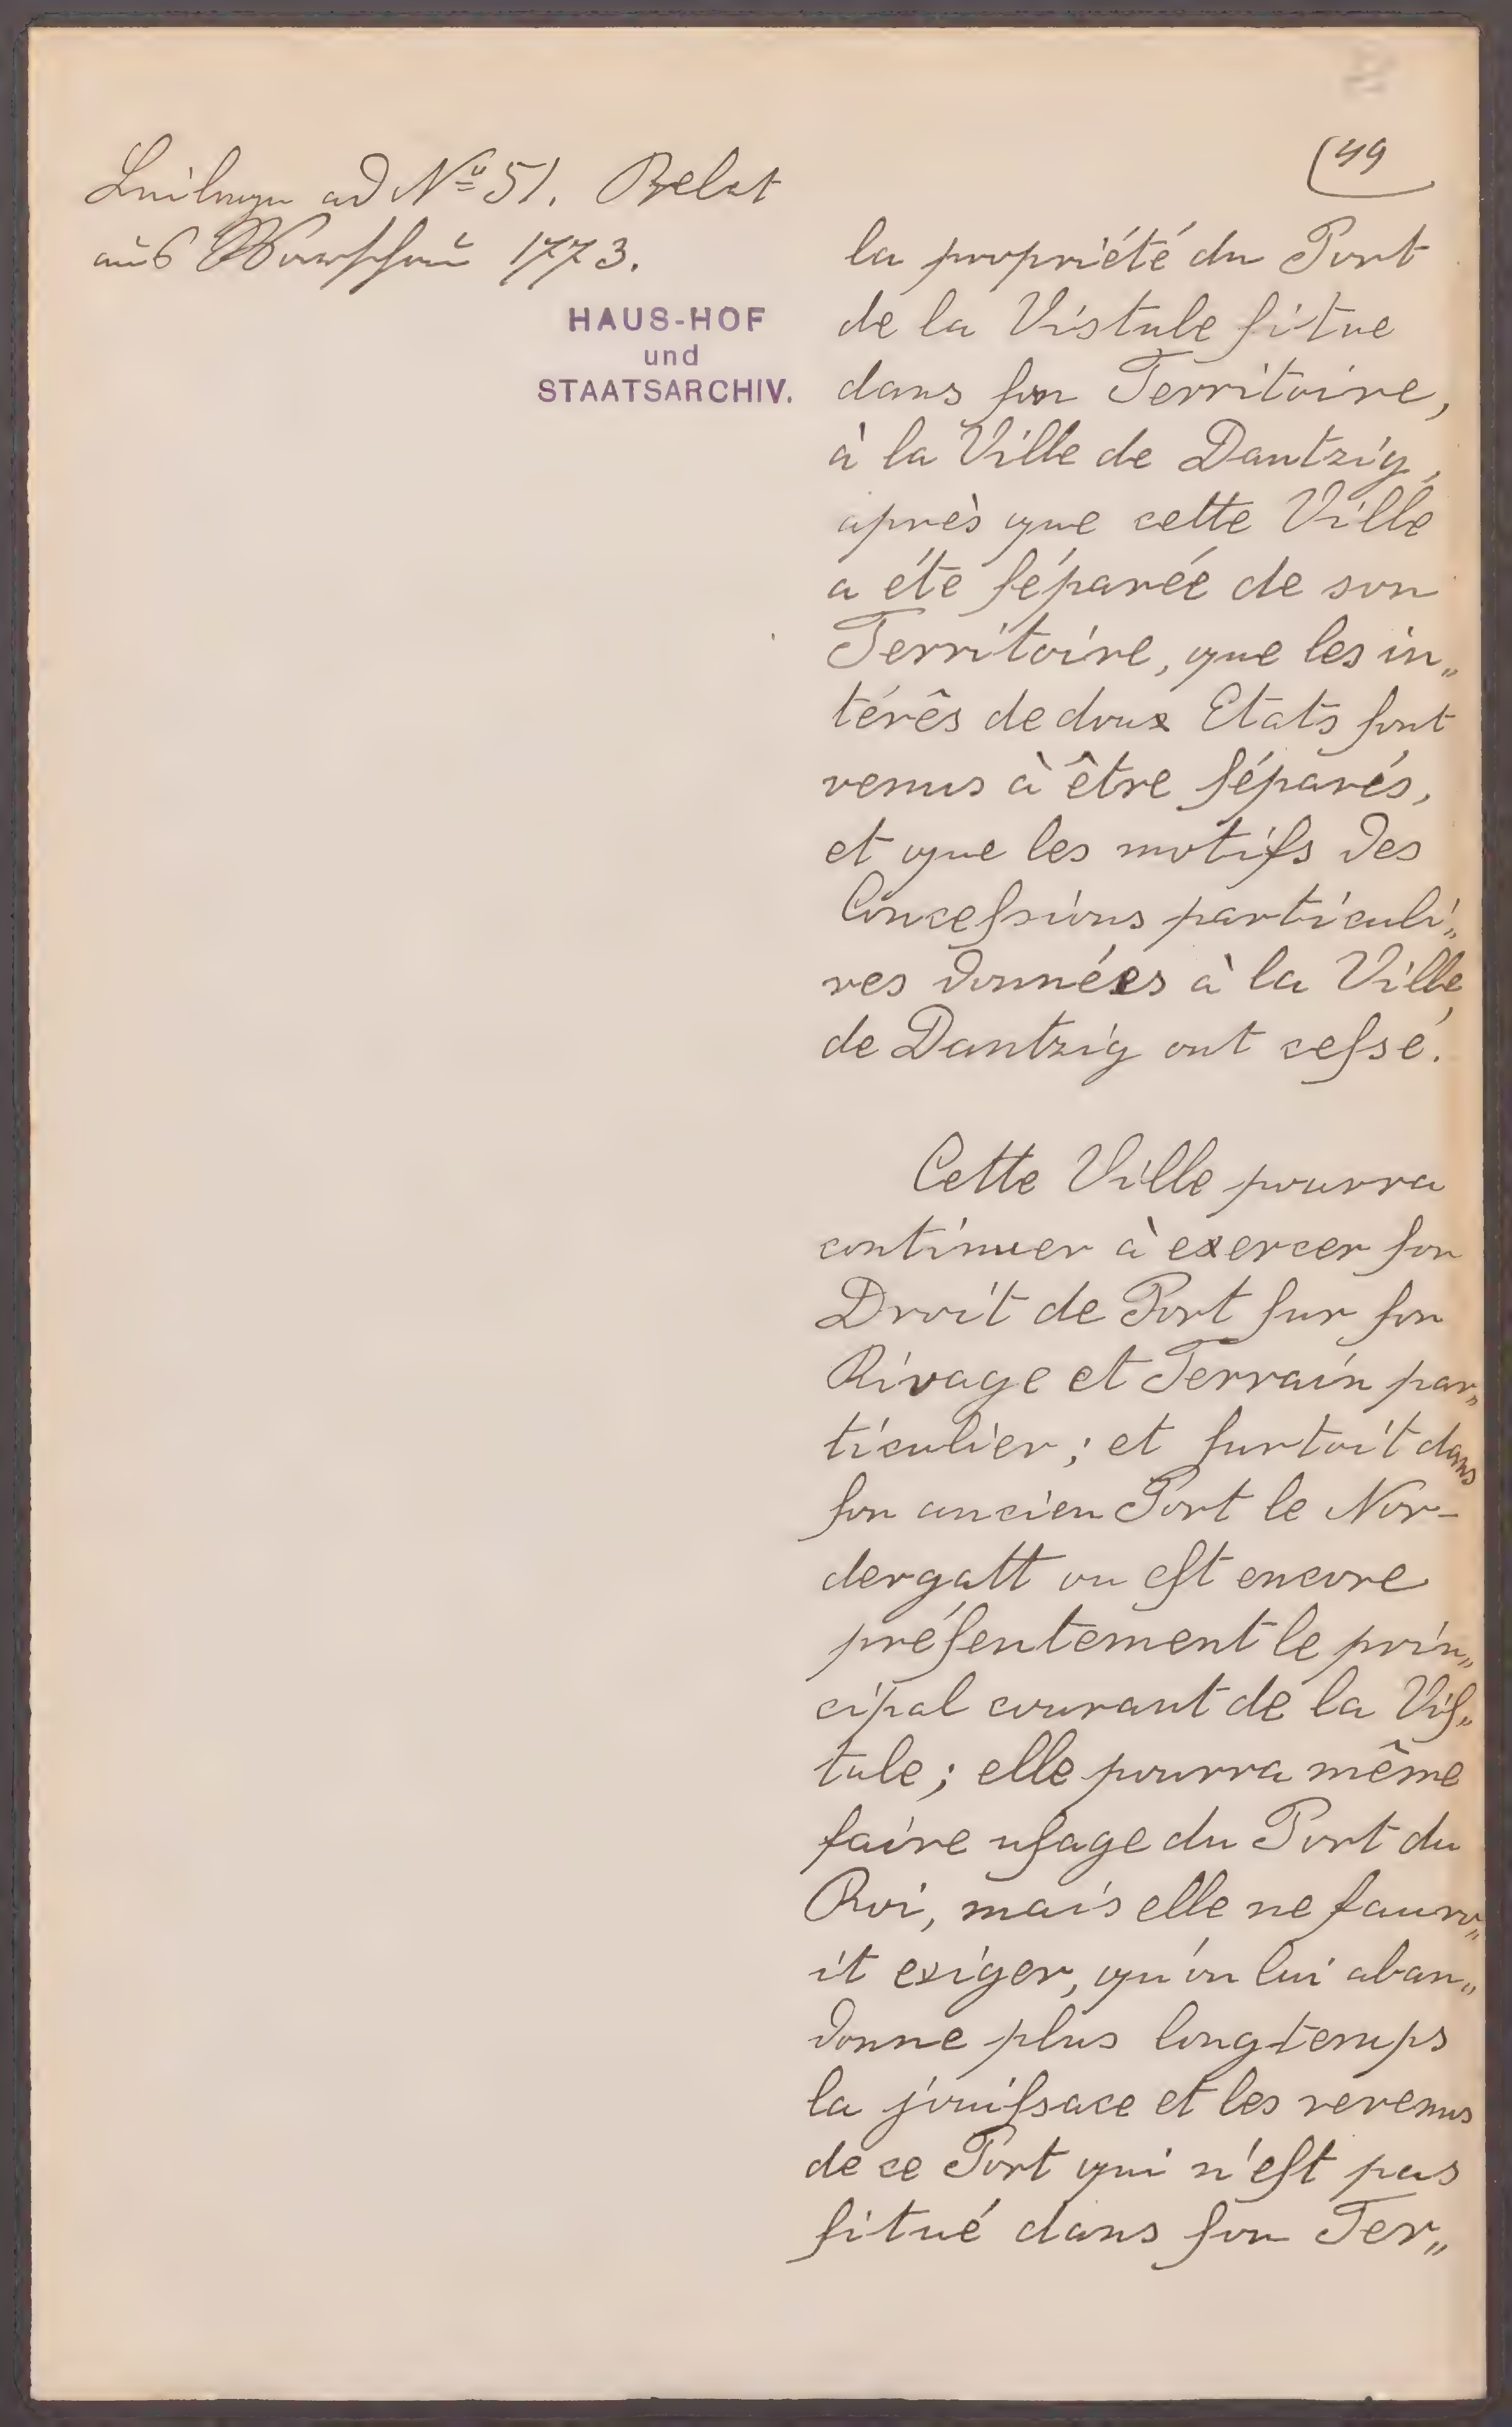 Beilagen ad Nº 51. Relat
aus Warschau 1773.
HAUS-HOF
und
STAATSARCHIV.
49
la propriété du Port
de la Vistule situe
dans son Territoire,
à la Ville de Dantzig,
après que cette Ville
a éte séparée de son
Territoire, que les in„
térês de doux Etats sont
venus à être séparés,
et que les motifs des
Concessions particuli„
res données à la Ville
de Dantzig ont cessé.
Cette Ville pourra
continuer à exercer son
Droit de Port sur son
Rivage et Terrain par„
ticulier; et surtoit dans
son ancien Port le Nor-
dergatt ou est encore
présentement le prin„
cipal courant de la Vis„
tule; elle pourra même
faire usage du Port du
Roi, mais elle ne sauro„
it exiger, qu'on lui aban„
donne plus longtemps
la jouissace et les revenus
de ce Port qui n'est pas
situé dans son Ter„